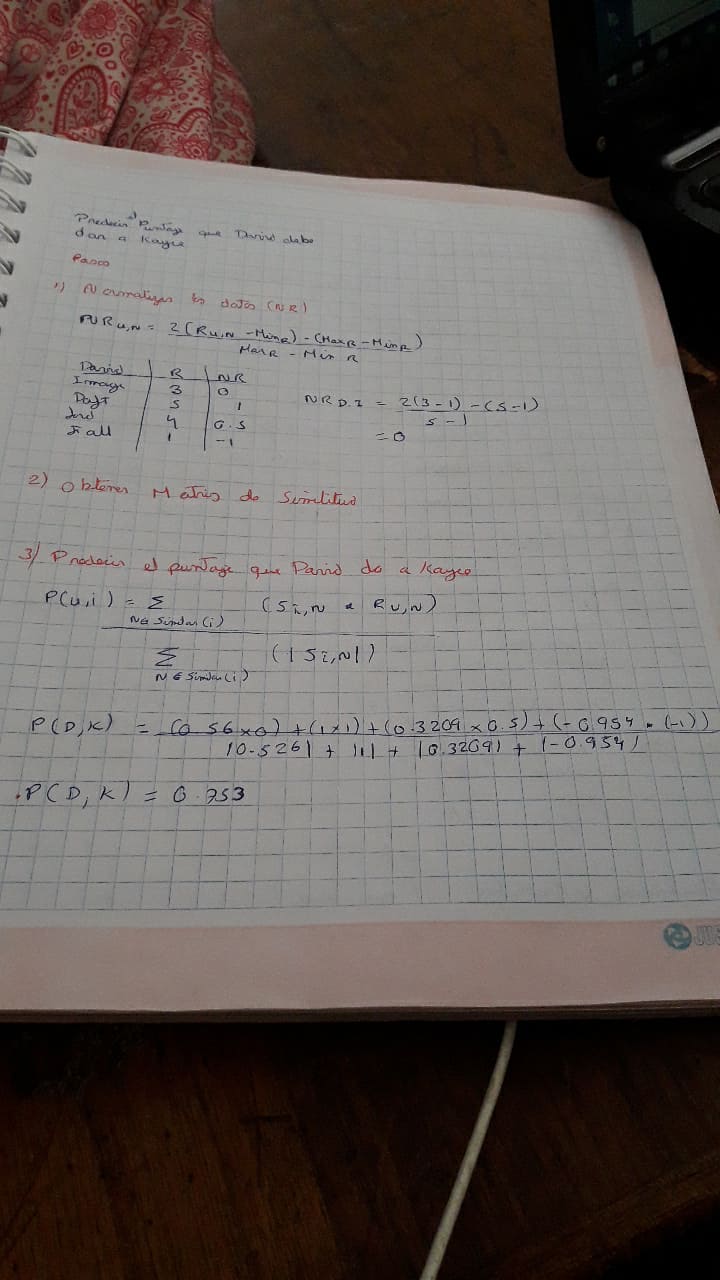 Predecir el Puntaje que David debe
dar a Kayce
Pasos
1) Normalizar los datos (NR)
NRu,N = 2(Ru,N - MinR) - (MaxR - MinR)
MaxR - Min R
David R NR
Image 3 0
Daft 5 1
4 0.5
Fall 1 -1
NR D.I = 2(3-1) - (5-1)
5-1
= 0
2) Obtener Matriz de Similitud
3) Predecir el puntaje que David da a Kayce
P(u,i) = Σ (Si,N * Ru,N)
N∈ Similar(i)
Σ (|Si,N|)
N ∈ Similar(i)
P(D,K) = (0.56x0) + (1x1) + (0.3209 x 0.5) + (-0.954 * (-1))
|0.526| + |1| + |0.3209| + |-0.954|
P(D,K) = 0.753